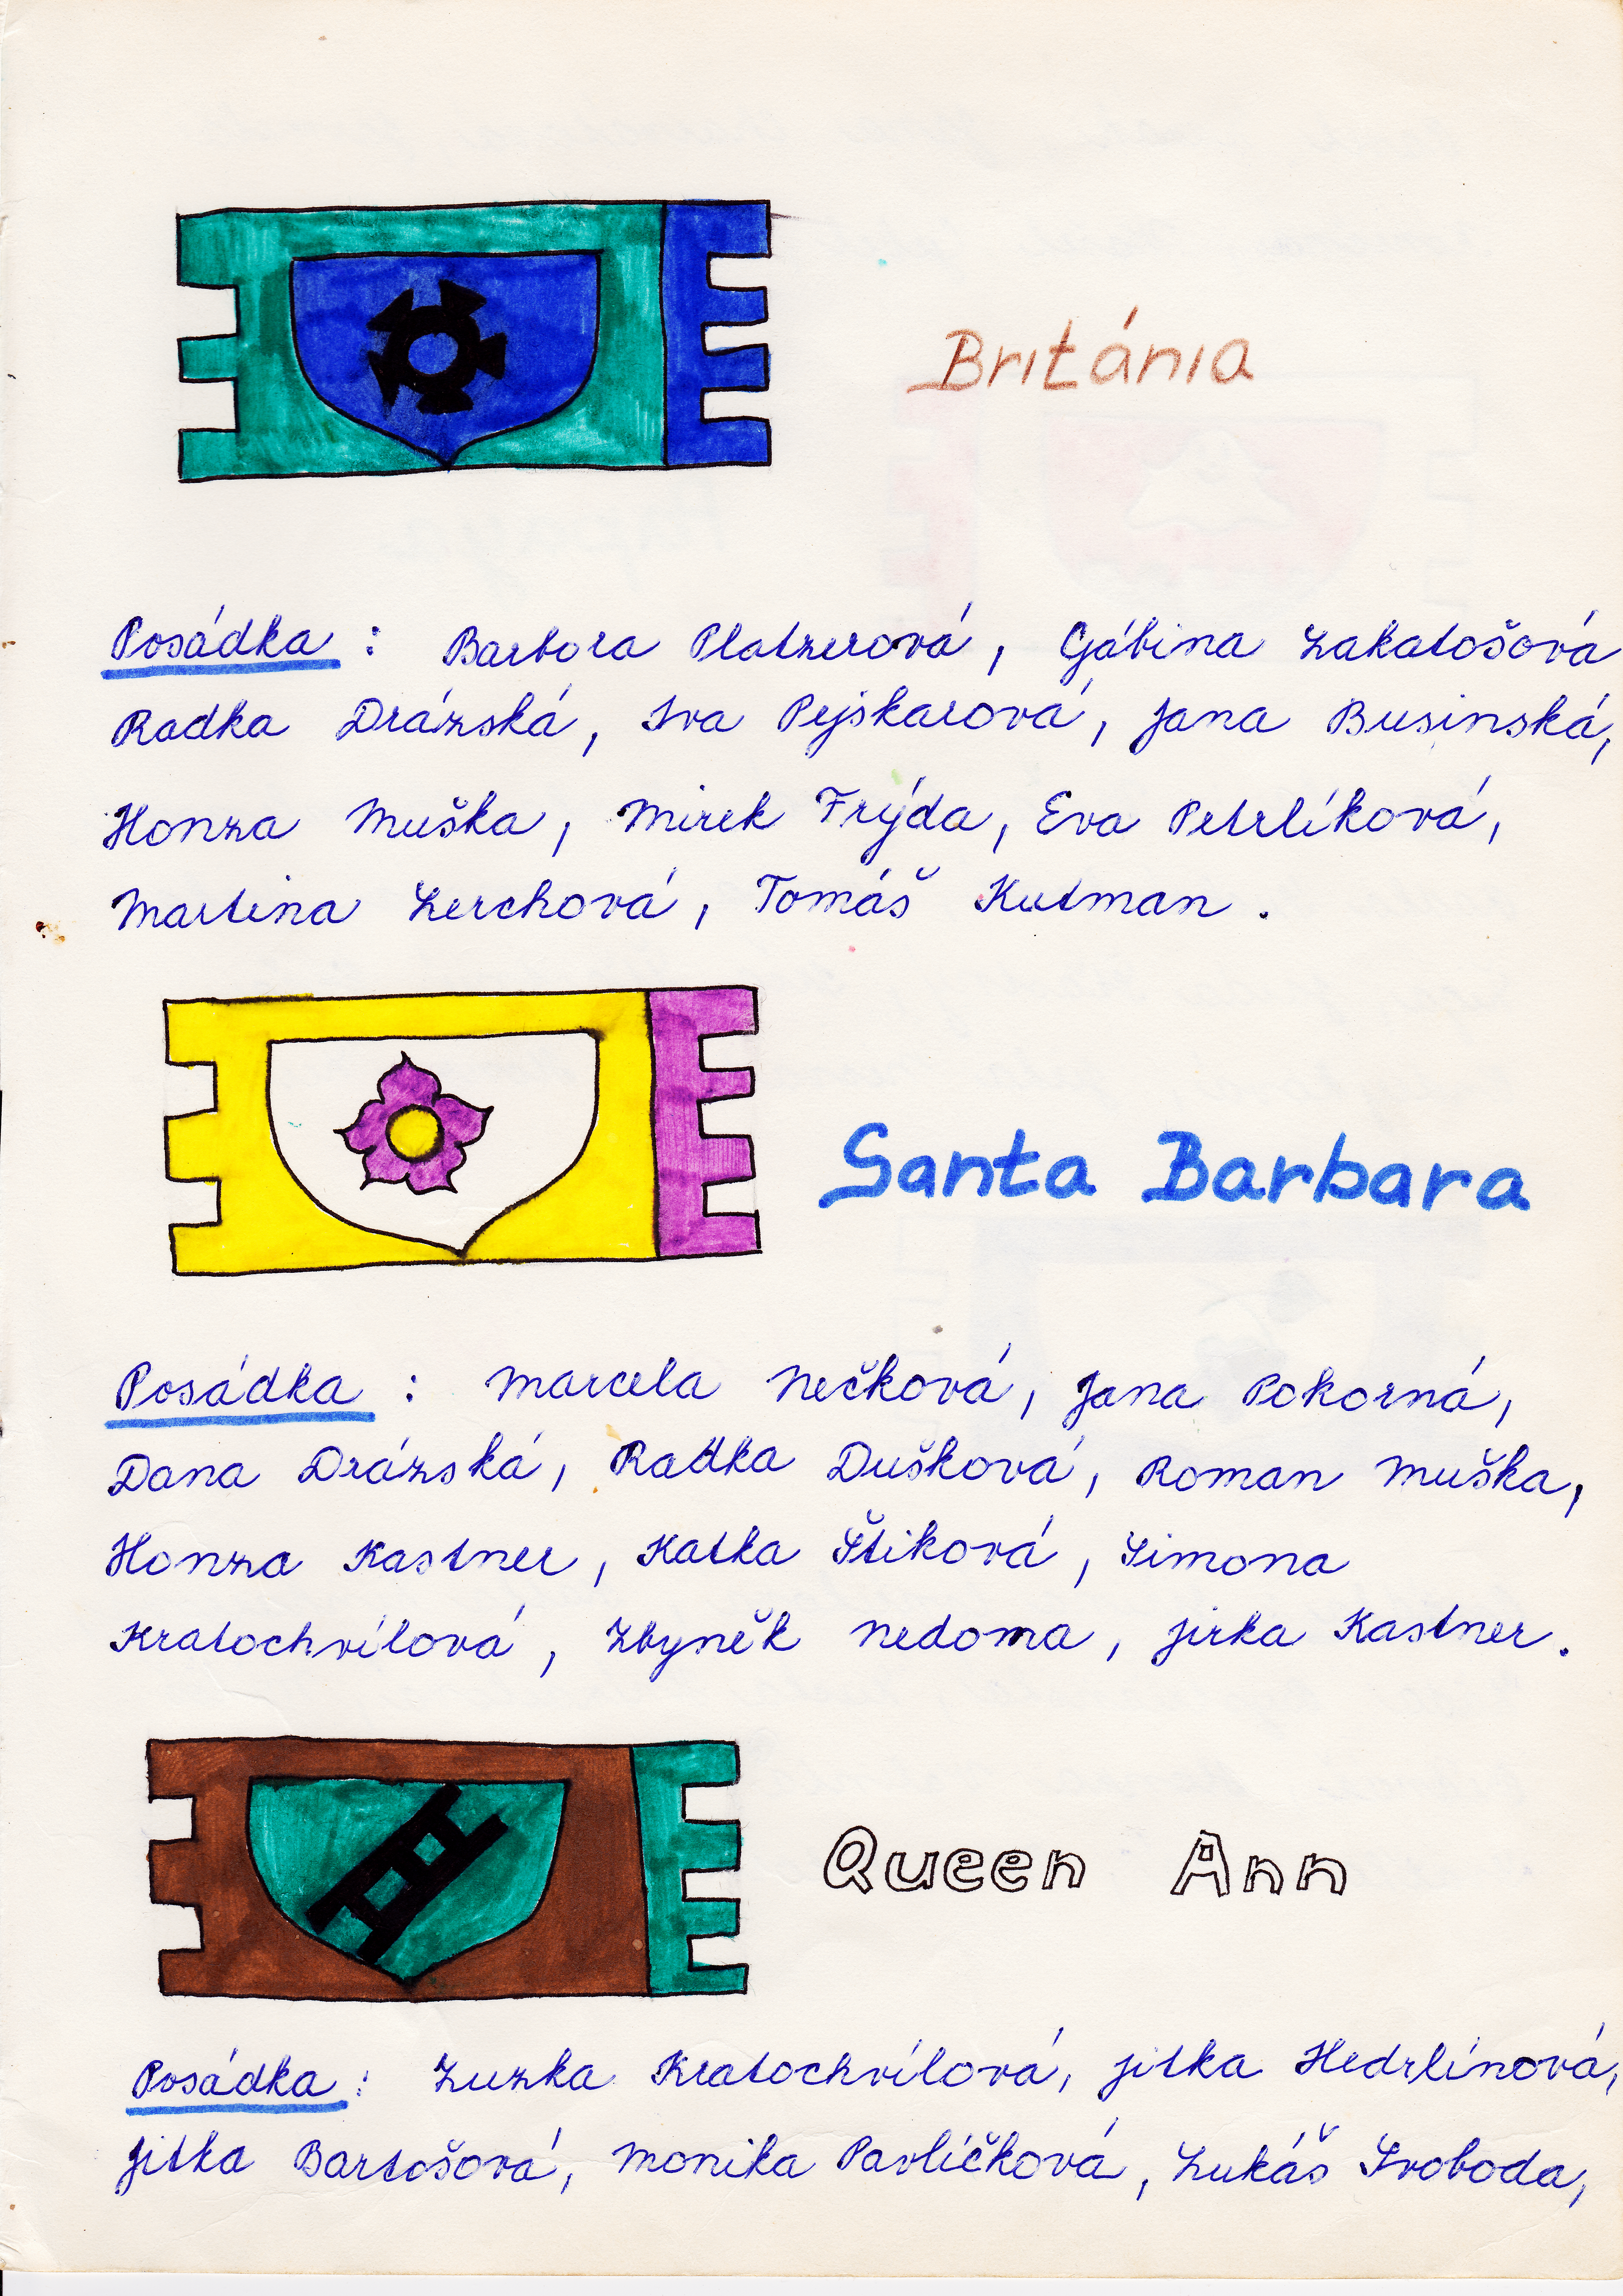 Británia
Posádka : Barbora Platzerová, Gábina Zakatošová
Radka Drázská, Iva Pejskarová, Jana Businská,
Honza Muška, Mirek Frýda, Eva Petrlíková,
Martina Lerchová, Tomáš Kutman.
Santa Barbara
Posádka : Marcela Nečková, Jana Pokorná,
Dana Drázská, Radka Dušková, Roman Muška,
Honza Kastner, Katka Štiková, Simona
Kratochvílová, Zbyněk Nedoma, Jirka Kastner.
Queen Ann
Posádka : Zuzka Kratochvílová, Jitka Hedrlínová,
Jitka Bartošová, Monika Pavlíčková, Lukáš Svoboda,